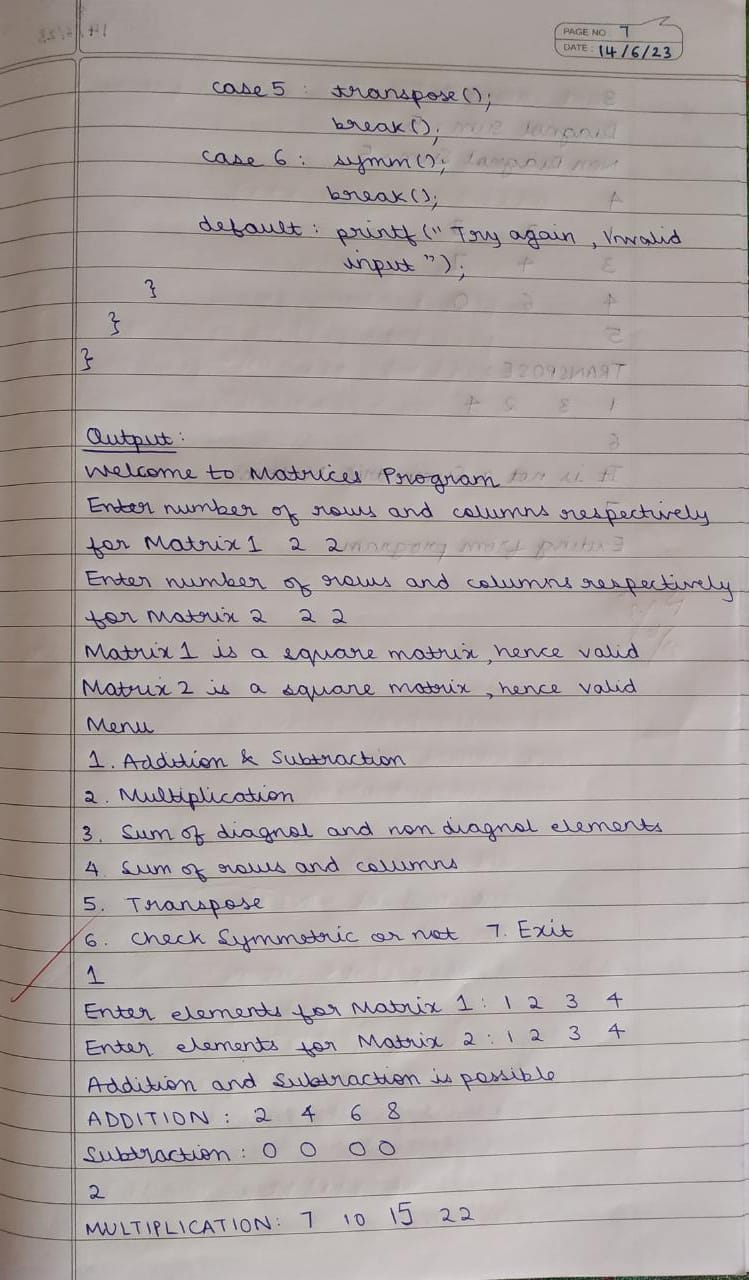 PAGE NO 7
DATE: 14/6/23
case 5 : transpose();
break();
case 6 : symm();
break();
default : printf (" Try again , Invalid
input ");
}
}
}
Output :
Welcome to Matrices Program
Enter number of rows and columns respectively
for Matrix 1 2 2
Enter number of rows and columns respectively
for Matrix 2 2 2
Matrix 1 is a square matrix, hence valid
Matrix 2 is a square matrix , hence valid
Menu
1. Addition & Subtraction
2. Multiplication
3. Sum of diagnol and non diagnol elements
4. Sum of rows and columns
5. Transpose
6. Check Symmetric or not 7. Exit
1
Enter elements for Matrix 1 : 1 2 3 4
Enter elements for Matrix 2 : 1 2 3 4
Addition and Subtraction is possible
ADDITION : 2 4 6 8
Subtraction : 0 0 0 0
2
MULTIPLICATION: 7 10 15 22